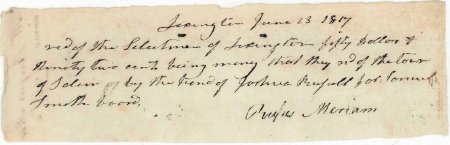 Lexington June 23 1817
recd of the Selectmen of Lexington fifty Dollars &
Ninety two cents being money that they recd of the town
of Salem by the hand of Joshua Russell for Samuel
Smiths board
Rufus Meriam